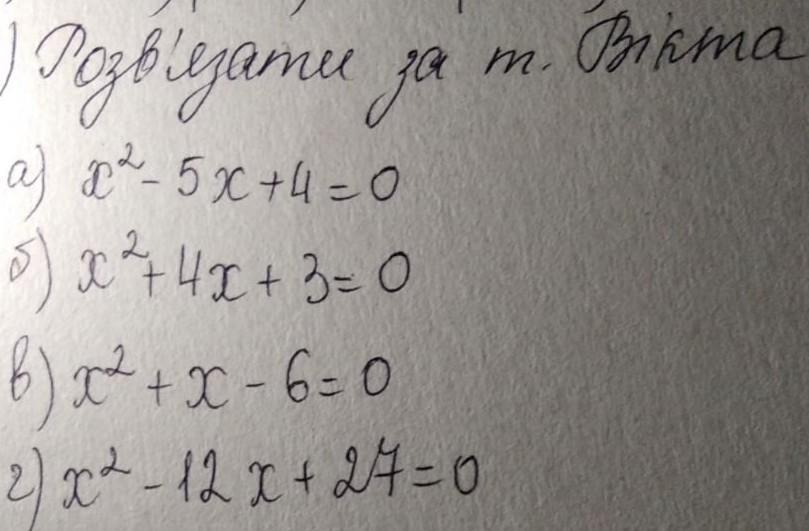 ) Розв'язати за т. Вікта
а) x² - 5x + 4 = 0
б) x² + 4x + 3 = 0
в) x² + x - 6 = 0
г) x² - 12x + 27 = 0